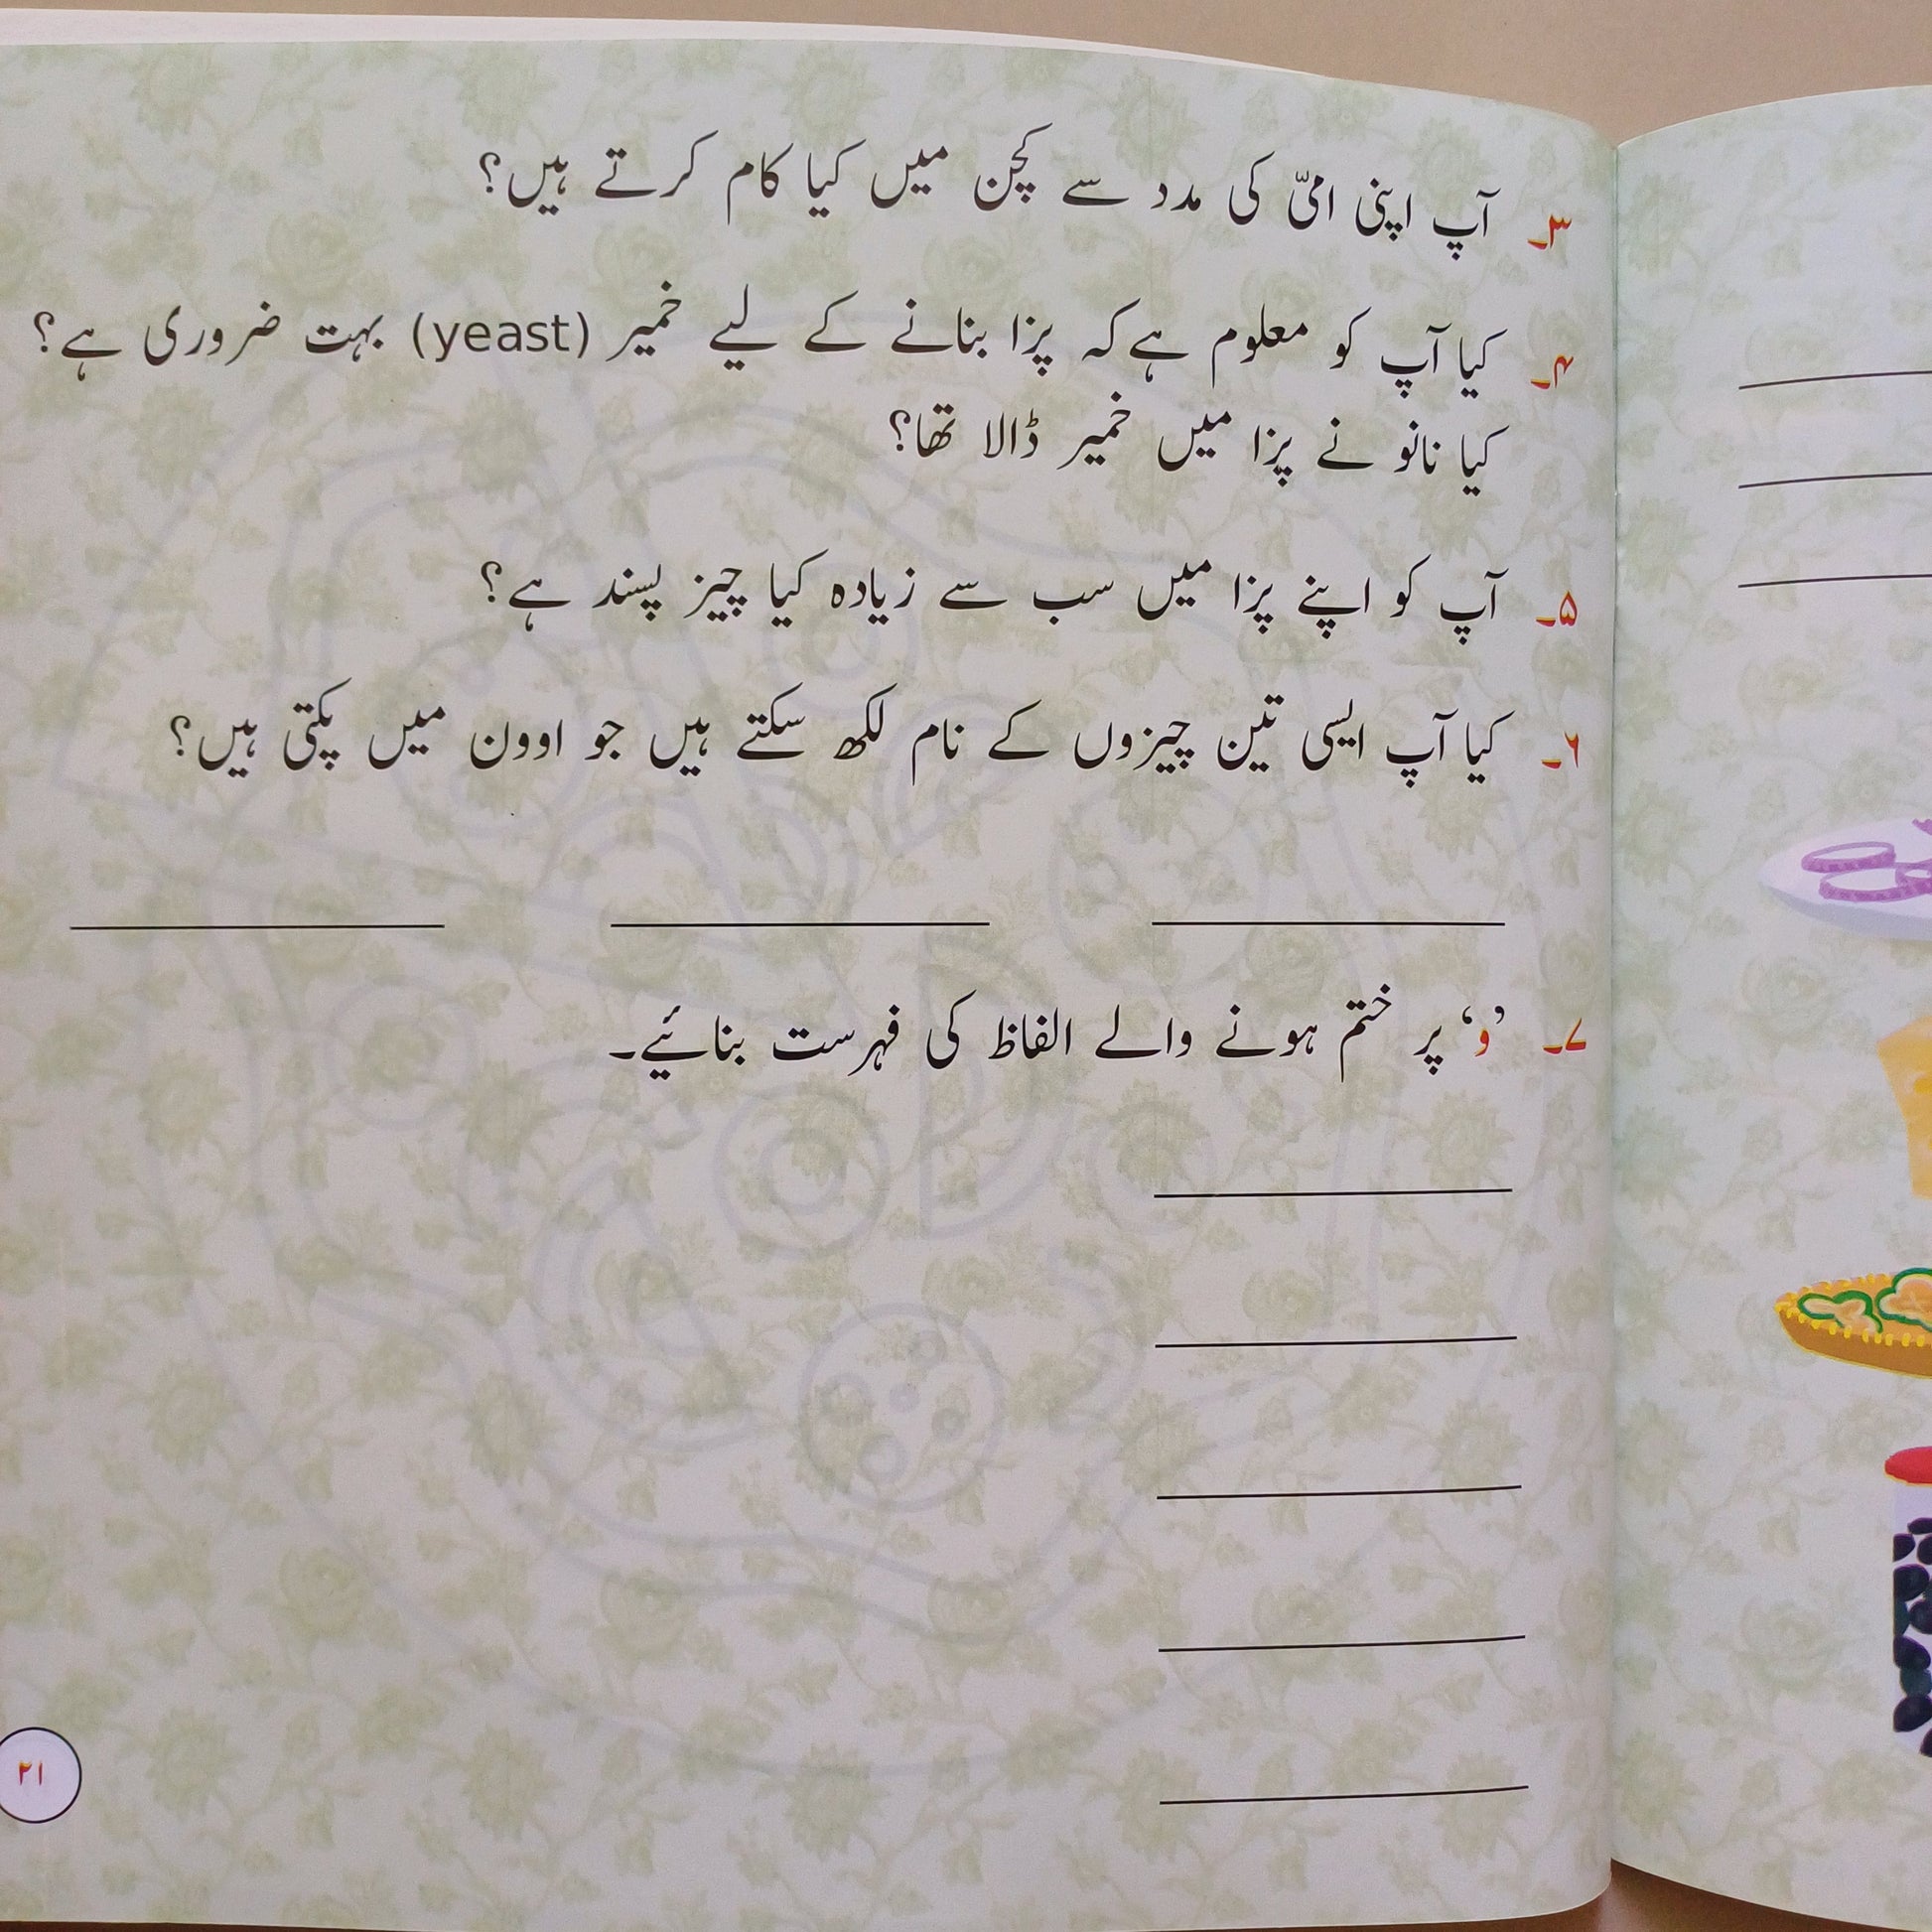 ۳۔ آپ اپنی امیّ کی مدد سے کچن میں کیا کام کرتے ہیں؟
۴۔ کیا آپ کو معلوم ہے کہ پزا بنانے کے لیے خمیر (yeast) بہت ضروری ہے؟
کیا نانو نے پزا میں خمیر ڈالا تھا؟
۵۔ آپ کو اپنے پزا میں سب سے زیادہ کیا چیز پسند ہے؟
۶۔ کیا آپ ایسی تین چیزوں کے نام لکھ سکتے ہیں جو اوون میں پکتی ہیں؟
۷۔ ’و‘ پر ختم ہونے والے الفاظ کی فہرست بنائیے۔
۲۱